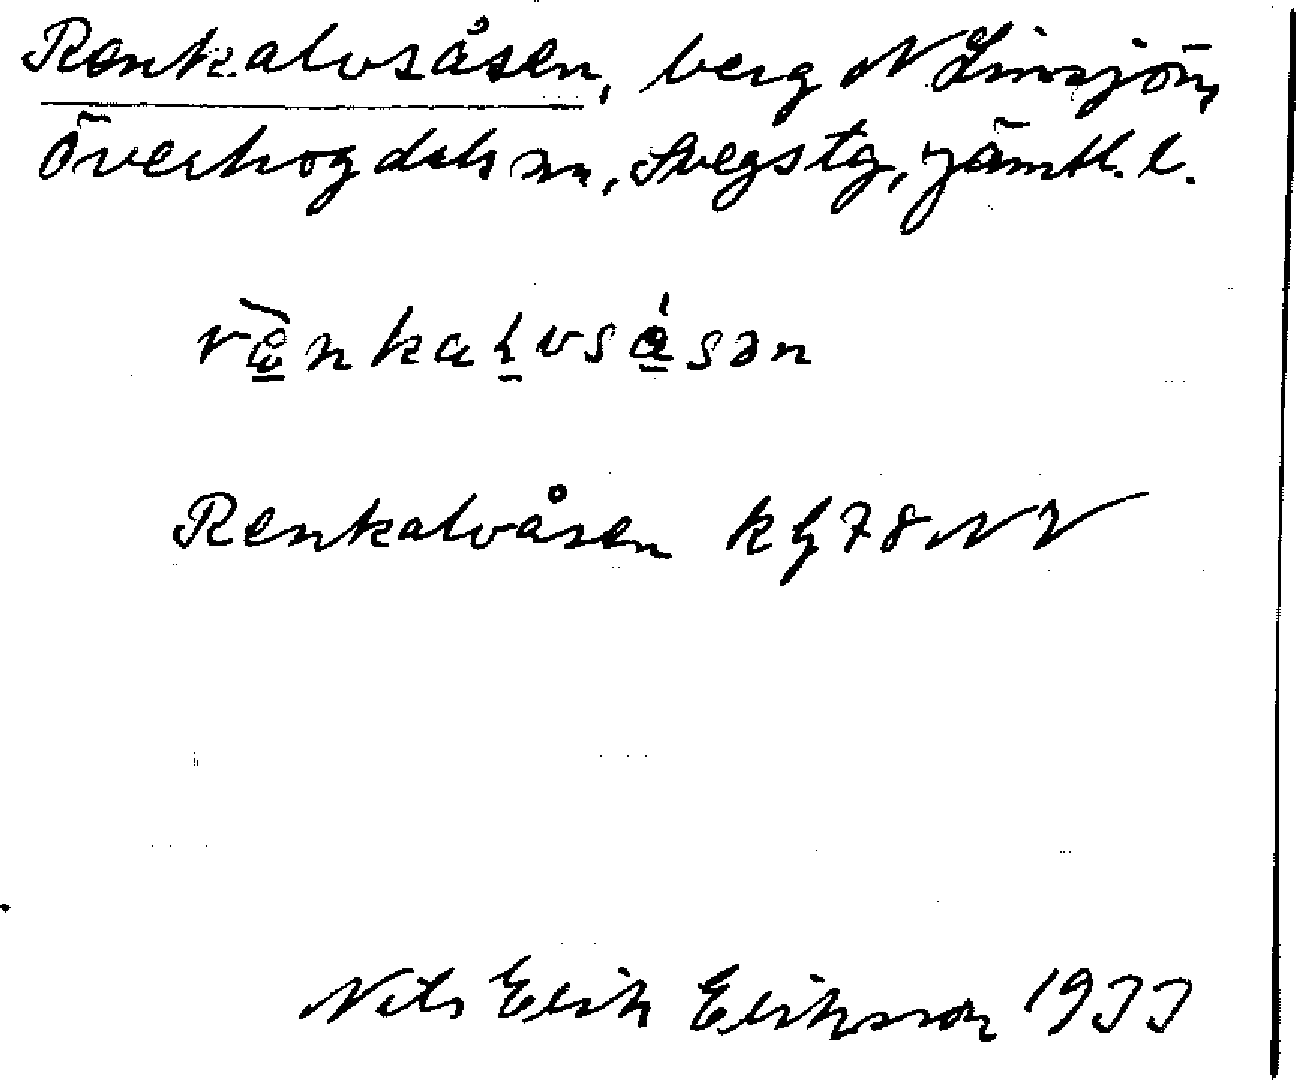 Renkalvsåsen, berg N Linsjön,
Överhogdals sn, Svegs tg, Jämtl. l.
rænkalvsåsən
Renkalvåsen kg 78 NV
Nils Erik Eriksson 1933